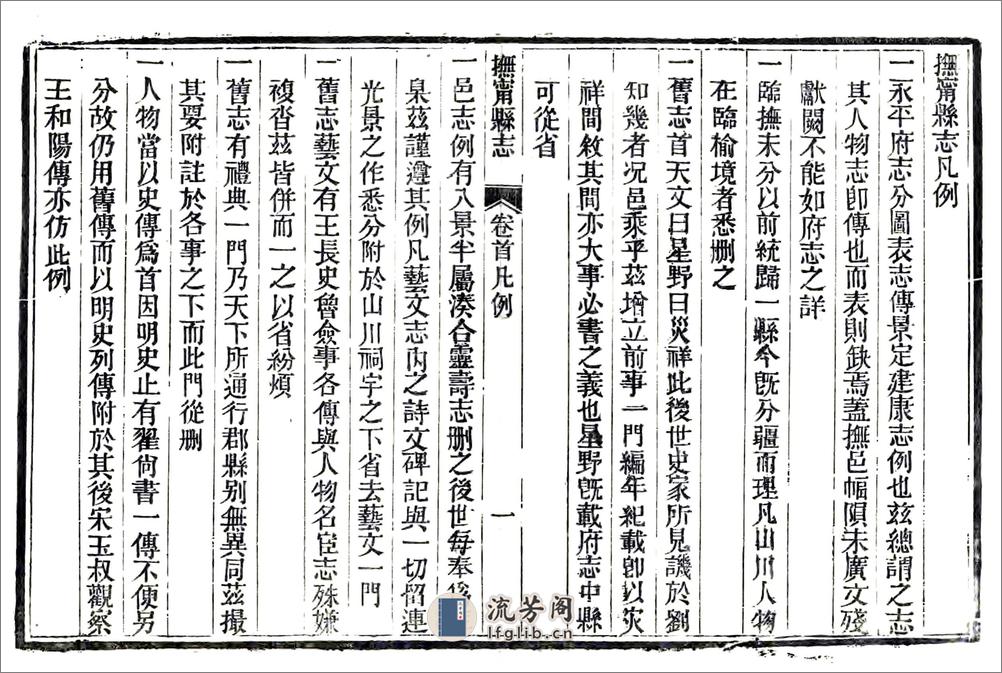 撫甯縣志凡例
一永平府志分圖表志傳景定建康志例也茲總謂之志
其人物志卽傳也而表則缺焉蓋撫邑幅隕未廣文殘
獻闕不能如府志之詳
一臨撫未分以前統歸一縣今旣分疆而理凡山川人物
在臨榆境者悉删之
一舊志首天文曰星野曰災祥此後世史家所見譏於劉
知幾者况邑乘乎茲增立前事一門編年紀載卽以災
祥間敘其間亦大事必書之義也星野旣載府志中縣
可從省
撫甯縣志
卷首凡例
一
一邑志例有八景半屬湊合靈壽志删之後世每奉爲
臬茲謹遵其例凡藝文志內之詩文碑記與一切留連
光景之作悉分附於山川祠宇之下省去藝文一門
一舊志藝文有王長史魯僉事各傳與人物名宦志殊嫌
複沓茲皆併而一之以省紛煩
一舊志有禮典一門乃天下所通行郡縣别無異同茲撮
其要附註於各事之下而此門從删
一人物當以史傳爲首因明史止有翟尙書一傳不便另
分故仍用舊傳而以明史列傳附於其後宋玉叔觀察
王和陽傳亦仿此例
流芳阁
lfglib.cn